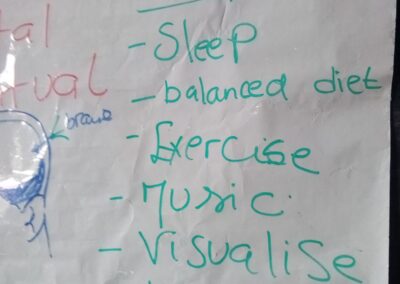 tal
tual
brain
- Sleep
- balanced diet
- Exercise
- Music.
- Visualise